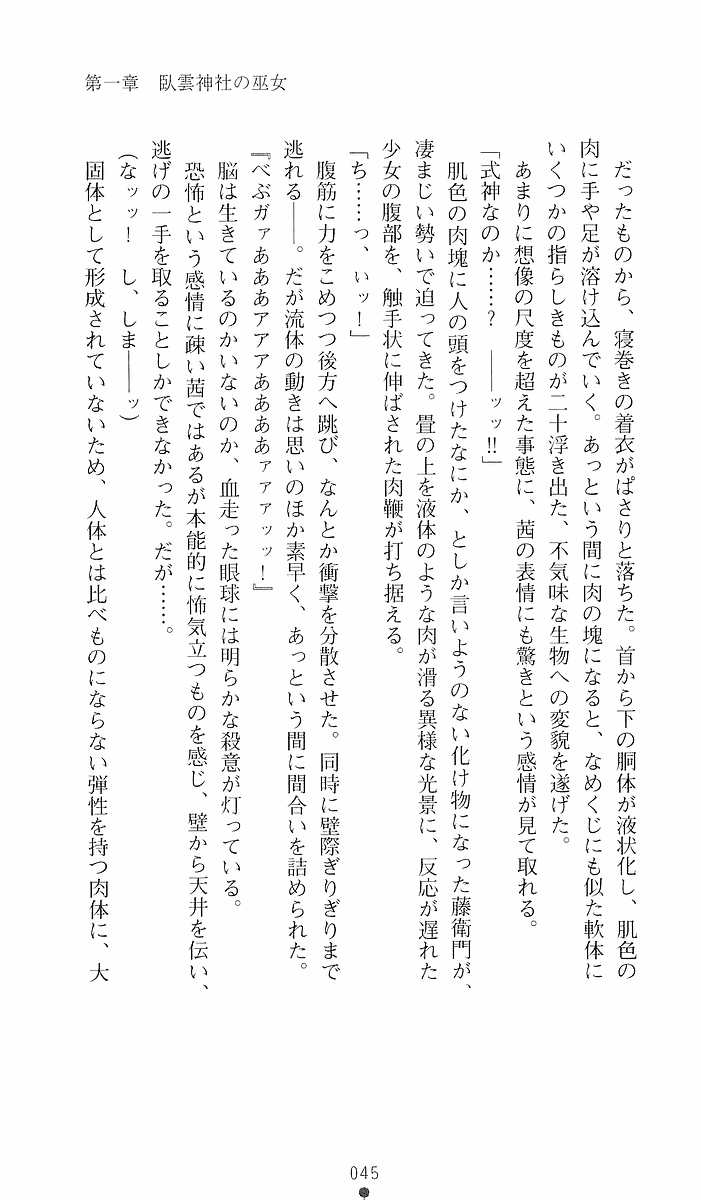 第一章　臥雲神社の巫女
だったものから、寝巻きの着衣がぱさりと落ちた。首から下の胴体が液状化し、肌色の
肉に手や足が溶け込んでいく。あっという間に肉の塊になると、なめくじにも似た軟体に
いくつかの指らしきものが二十浮き出た、不気味な生物への変貌を遂げた。
　あまりに想像の尺度を超えた事態に、茜の表情にも驚きという感情が見て取れる。
「式神なのか……？　――ッッ!!」
　肌色の肉塊に人の頭をつけたなにか、としか言いようのない化け物になった藤衛門が、
凄まじい勢いで迫ってきた。畳の上を液体のような肉が滑る異様な光景に、反応が遅れた
少女の腹部を、触手状に伸ばされた肉鞭が打ち据える。
「ち……っ、ぃッ！」
　腹筋に力をこめつつ後方へ跳び、なんとか衝撃を分散させた。同時に壁際ぎりぎりまで
逃れる――。だが流体の動きは思いのほか素早く、あっという間に間合いを詰められた。
『べぶガァあああアアアああああァァァッッ！』
　脳は生きているのかいないのか、血走った眼球には明らかな殺意が灯っている。
　恐怖という感情に疎い茜ではあるが本能的に怖気立つものを感じ、壁から天井を伝い、
逃げの一手を取ることしかできなかった。だが……。
（なッッ！　し、しま――ッ）
　固体として形成されていないため、人体とは比べものにならない弾性を持つ肉体に、大
045